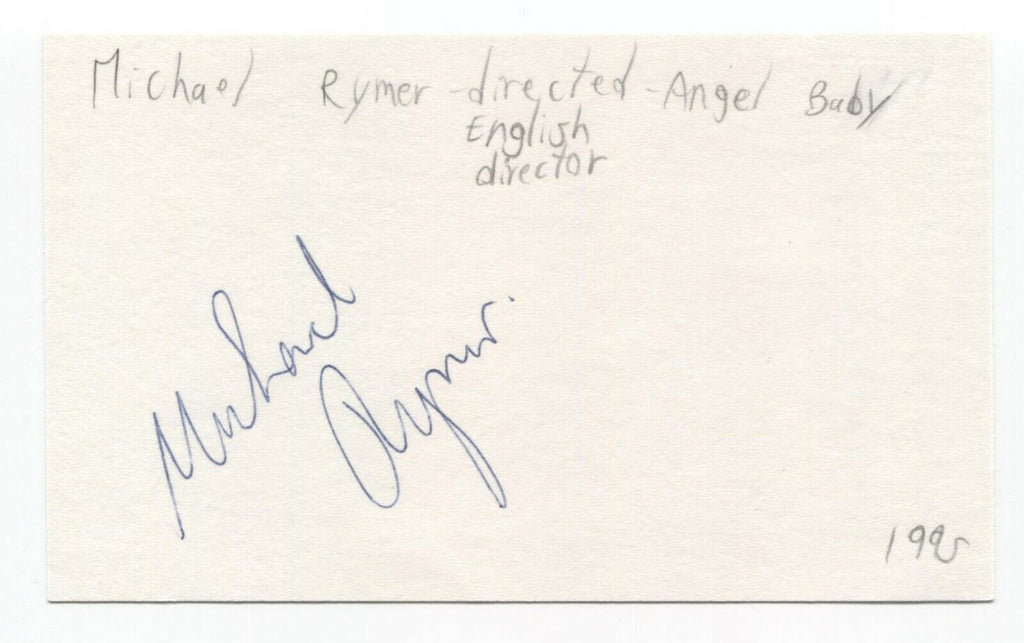 Michael Rymer - directed - Angel Baby
English
director
Michael
Rymer.
1995